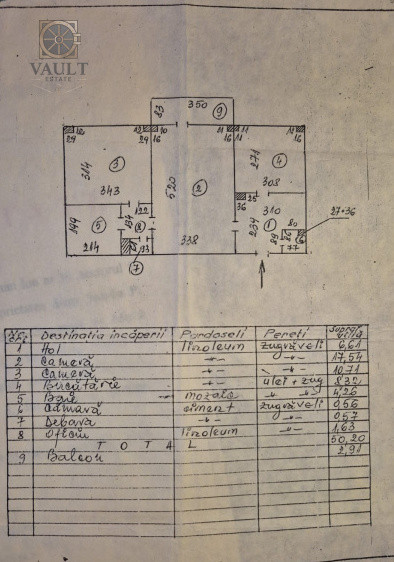 VAULT
ESTATE
83
350
9
12
29
12 10
24 16
11 11
16 11
11
16
314
3
343
520
2
271
4
308
25
36
122
310
199
5
214
134
8
133
7
338
234
1
89
80
86
6
77
27•36
Destinatia încăperii Pardoseli Pereti
1 Hol linoleum zugrăveli 6,61
2 Cameră -"- -"- 17,54
3 Cameră -"- -"- 10,71
4 Bucătărie -"- ulei + zug 8,32
5 Baie mozaic -"- 4,26
6 Cămară ciment zugrăveli 0,56
7 Debara -"- -"- 0,57
8 Oficiu linoleum -"- 1,63
T O T A L 50,20
9 Balcon 2,91